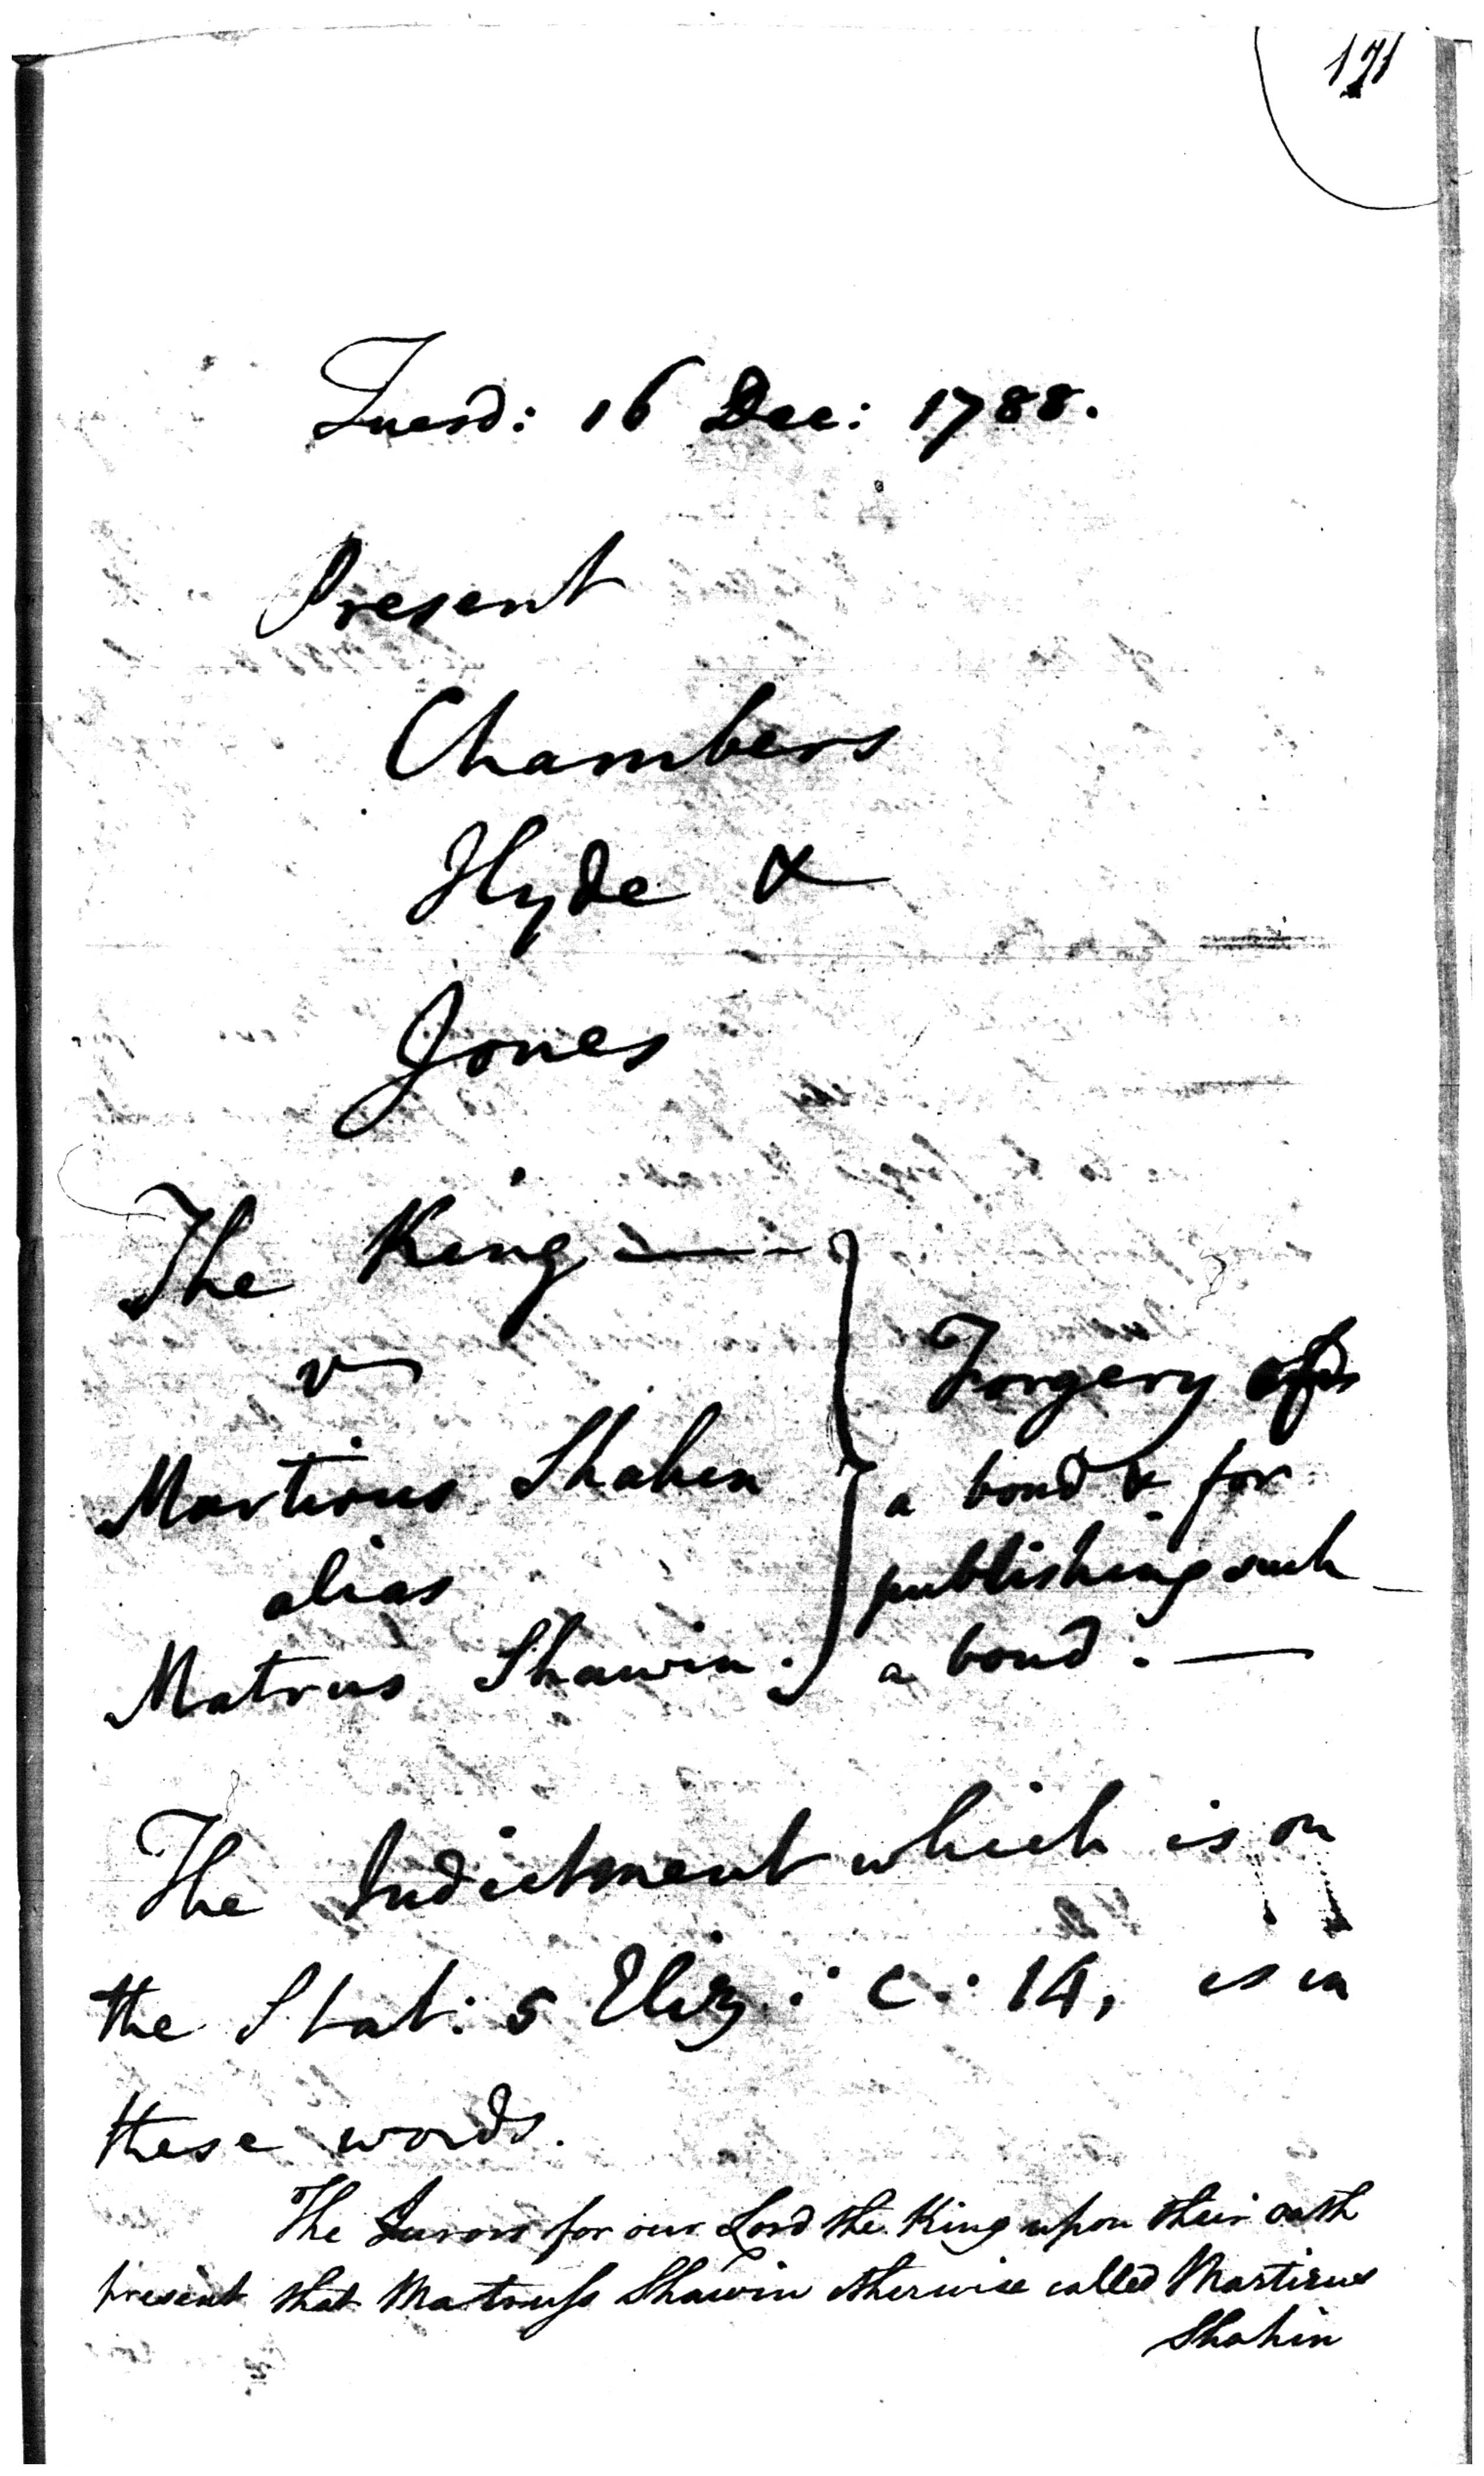 171
Tuesd: 16 Dec: 1788.
Present
Chambers
Hyde &
Jones
The King
v
Martirus Shahin
alias
Matrus Shawin.
Forgery of
a bond & for
publishing such
a bond. —
The Indictment which is on
the Stat: 5 Eliz: c: 14, is in
these words.
The Jurors for our Lord the King upon their oath
present that Matruss Shawin otherwise called Martirus
Shahin